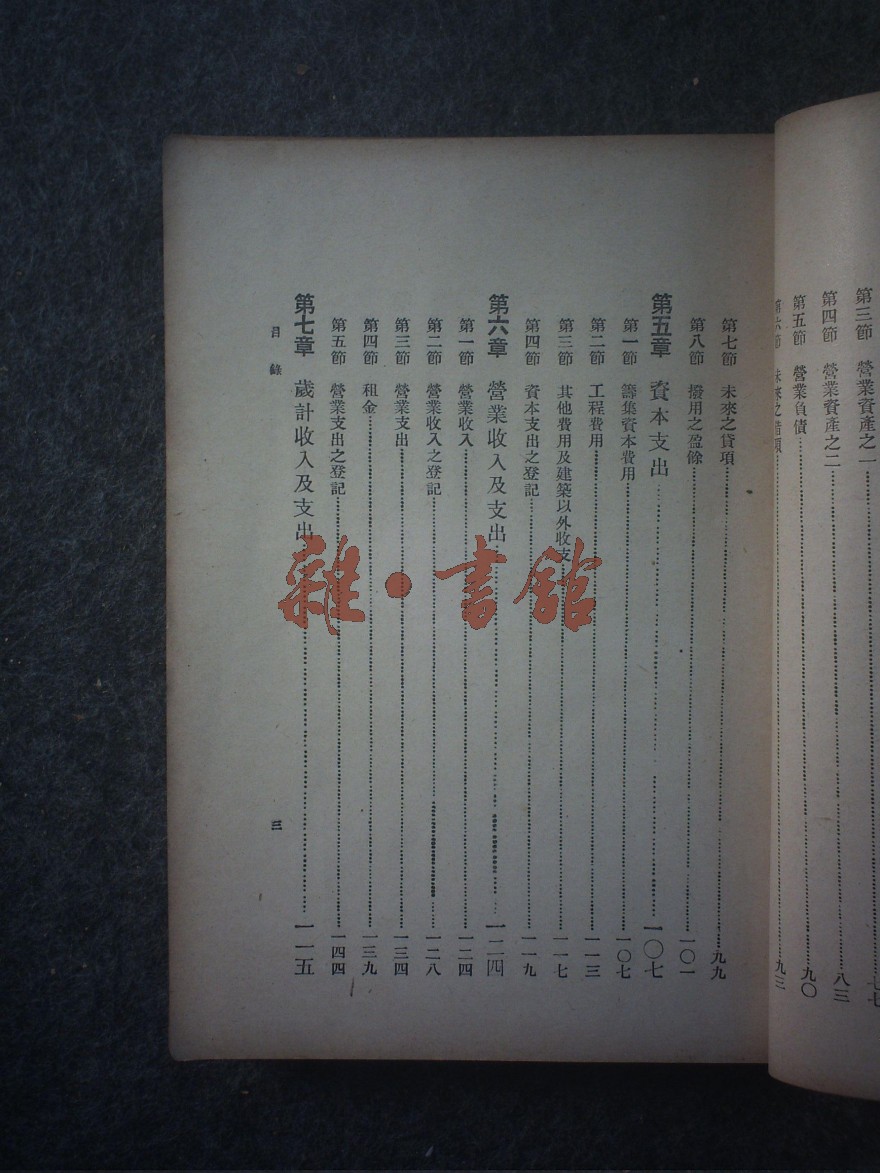 第三節 營業資產之一……七七
第四節 營業資產之二……八三
第五節 營業負債……九〇
第六節 未來之借項……九三
第七節 未來之貸項……九九
第八節 撥用之盈餘……一〇一
第五章 資本支出……一〇七
第一節 籌集資本費用……一〇七
第二節 工程費用……一一三
第三節 其他費用及建築以外收支……一一七
第四節 資本支出之登記……一一九
第六章 營業收入及支出……一二四
第一節 營業收入……一二四
第二節 營業收入之登記……一二八
第三節 營業支出……一三四
第四節 租金……一三九
第五節 營業支出之登記……一四四
第七章 歲計收入及支出……一一五
目錄 三
雜·書館